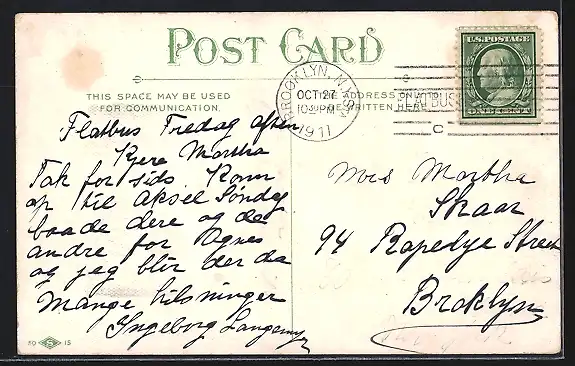 POST CARD
THIS SPACE MAY BE USED
FOR COMMUNICATION.
THE ADDRESS ONLY TO
BE WRITTEN HERE
BROOKLYN, N.Y.
OCT 27
1911
U.S. POSTAGE
Flatbus Fredag aften
Kjere Martha
Tak for sids Kom
op til Aksel Söndag
baade dere og de
andre for Agnes
og jeg blir der da
Mange hilsninger
Ingeborg
Mrs Martha
Skaar
94 Rapelye Street
Broklyn
50 S 15
C